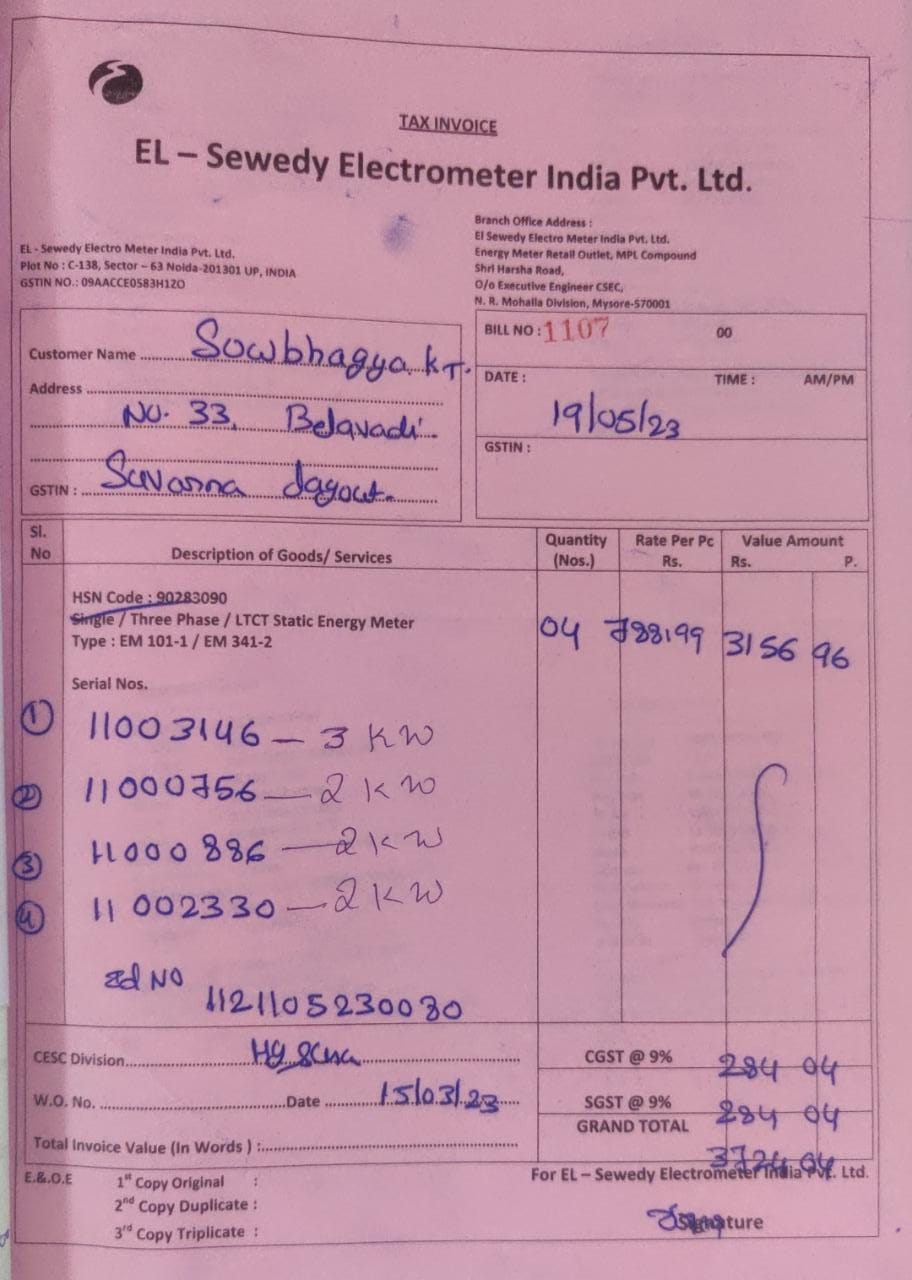 TAX INVOICE
EL – Sewedy Electrometer India Pvt. Ltd.
EL - Sewedy Electro Meter India Pvt. Ltd.
Plot No : C-138, Sector – 63 Noida-201301 UP, INDIA
GSTIN NO.: 09AACCE0583H1ZO
Branch Office Address :
El Sewedy Electro Meter India Pvt. Ltd.
Energy Meter Retail Outlet, MPL Compound
Shri Harsha Road,
O/o Executive Engineer CSEC,
N. R. Mohalla Division, Mysore-570001
Customer Name Sowbhagya K T.
Address
No. 33, Belavadi
GSTIN : Savanna Layout
BILL NO : 1107 00
DATE : TIME : AM/PM
19/05/23
GSTIN :
Sl. No Description of Goods/ Services Quantity (Nos.) Rate Per Pc Rs. Value Amount Rs. P.
HSN Code : 90283090
Single / Three Phase / LTCT Static Energy Meter
Type : EM 101-1 / EM 341-2
04 788.99 3156 96
Serial Nos.
① 11003146 – 3 KW
② 11000756 – 2 KW
③ 11000886 – 2 KW
④ 11002330 – 2 KW
NO
1121105230030
CESC Division
CGST @ 9% 284 04
W.O. No. Date 15/03/23
SGST @ 9% 284 04
GRAND TOTAL 3724 04
Total Invoice Value (In Words ) :
E.&.O.E 1st Copy Original :
2nd Copy Duplicate :
3rd Copy Triplicate :
For EL – Sewedy Electrometer India Pvt. Ltd.
Signature